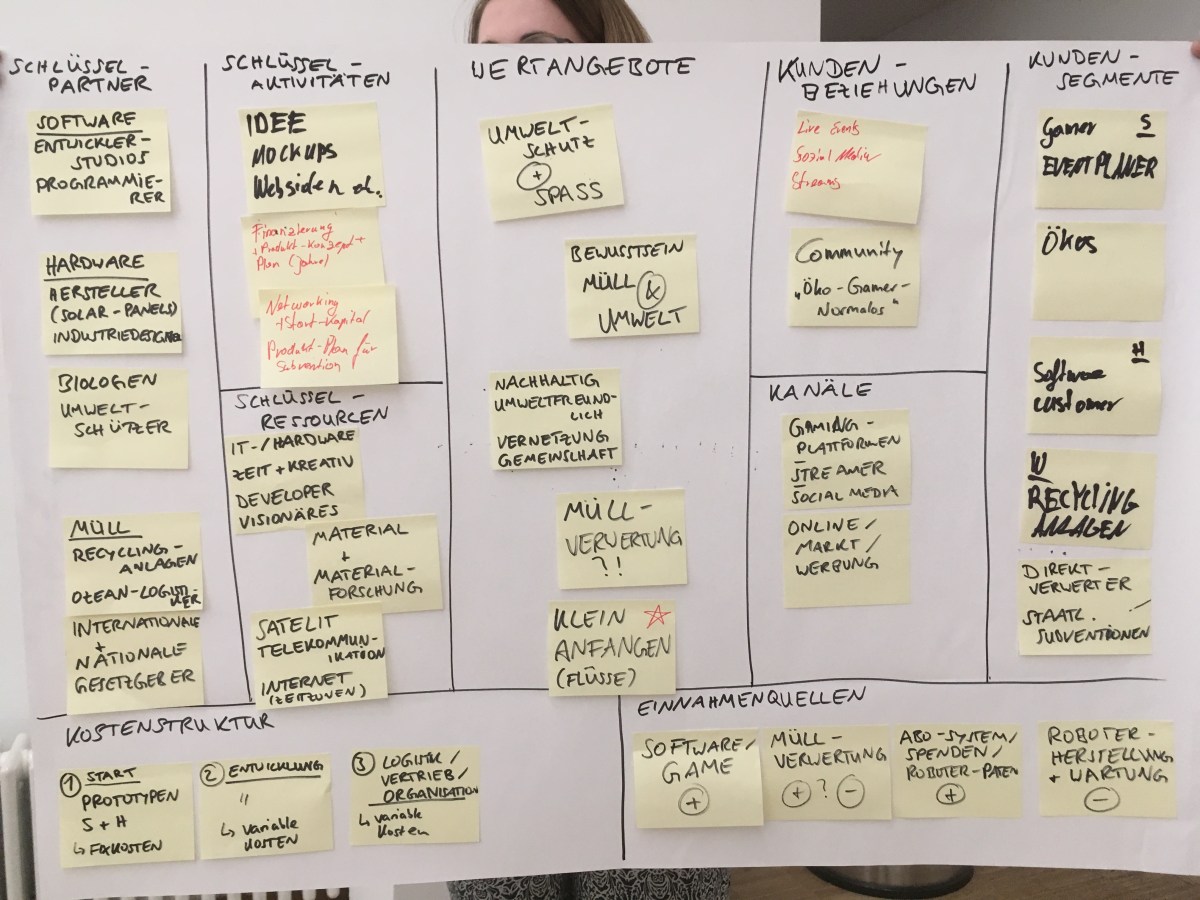 SCHLÜSSEL-
PARTNER
SOFTWARE
ENTWICKLER-
STUDIOS
PROGRAMMIE-
RER
HARDWARE
HERSTELLER
(SOLAR-PANELS)
INDUSTRIEDESIGNER
BIOLOGEN
UMWELT-
SCHÜTZER
MÜLL
RECYCLING-
ANLAGEN
OZEAN-LOGISTI
KER
INTERNATIONALE
+
NATIONALE
GESETZGEBER
SCHLÜSSEL-
AKTIVITÄTEN
IDEE
MOCKUPS
Websiden
Finanzierung
Produkt-Konzept +
Plan (Jahre)
Networking
+ Start-Kapital
Produkt-Plan für
Subvention
SCHLÜSSEL-
RESSOURCEN
IT-/HARDWARE
ZEIT + KREATIV
DEVELOPER
VISIONÄRES
MATERIAL
+
MATERIAL-
FORSCHUNG
SATELIT
TELEKOMMUN-
IKATION
INTERNET
(ZEITZONEN)
WERTANGEBOTE
UMWELT-
SCHUTZ
+
SPASS
BEWUSSTSEIN
MÜLL &
UMWELT
NACHHALTIG
UMWELTFREUND-
LICH
VERNETZUNG
GEMEINSCHAFT
MÜLL-
VERWERTUNG
?!
KLEIN
ANFANGEN
(FLÜSSE)
KUNDEN-
BEZIEHUNGEN
Live Events
Sozial Media
Streams
Community
„Öko-Gamer-
Normalos"
KANÄLE
GAMING-
PLATTFORMEN
STREAMER
SOCIAL MEDIA
ONLINE/
MARKT/
WERBUNG
KUNDEN-
SEGMENTE
Gamer S
EVENTPLANER
Ökos
H
Software
customer
W
RECYCLING
ANLAGEN
DIREKT-
VERWERTER
STAATL.
SUBVENTIONEN
KOSTENSTRUKTUR
1 START
PROTOTYPEN
S + H
↳ FIXKOSTEN
2 ENTWICKLUNG
"
↳ variable
KOSTEN
3 LOGISTIK/
VERTRIEB/
ORGANISATION
↳ variable
Kosten
EINNAHMENQUELLEN
SOFTWARE/
GAME
+
MÜLL-
VERWERTUNG
+ ? -
ABO-SYSTEM/
SPENDEN/
ROBOTER-PATEN
+
ROBOTER-
HERSTELLUNG
+ WARTUNG
-